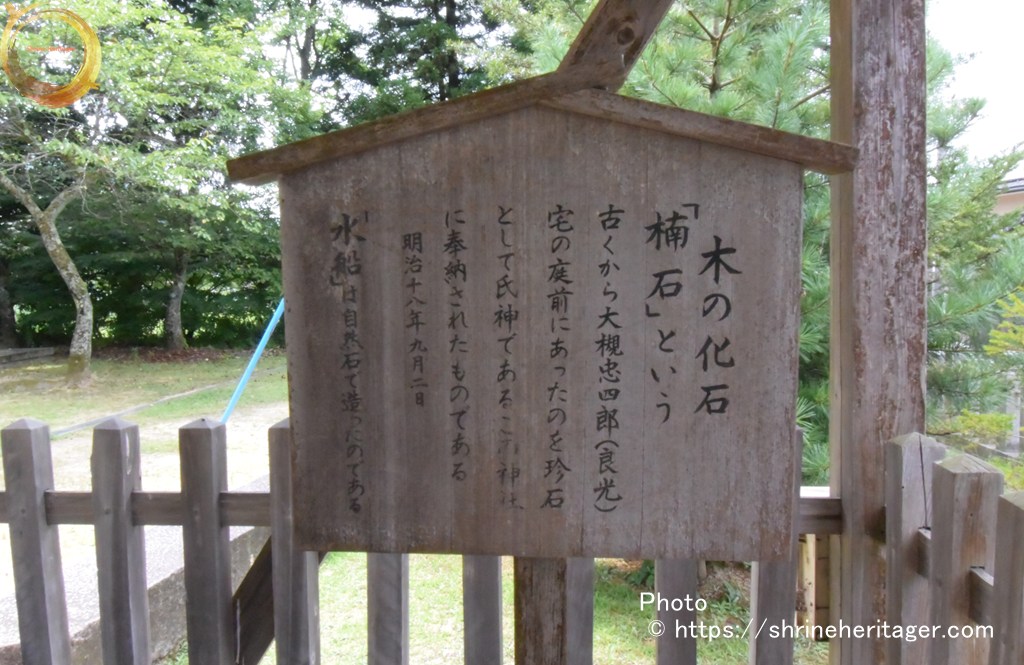 木の化石
「楠石」という
古くから大槻忠四郎(良光)
宅の庭前にあったのを珍石
として氏神であるこの神社
に奉納されたものである
明治十八年九月二日
「水船」は自然石で造ったのである
Photo
© https://shrineheritager.com